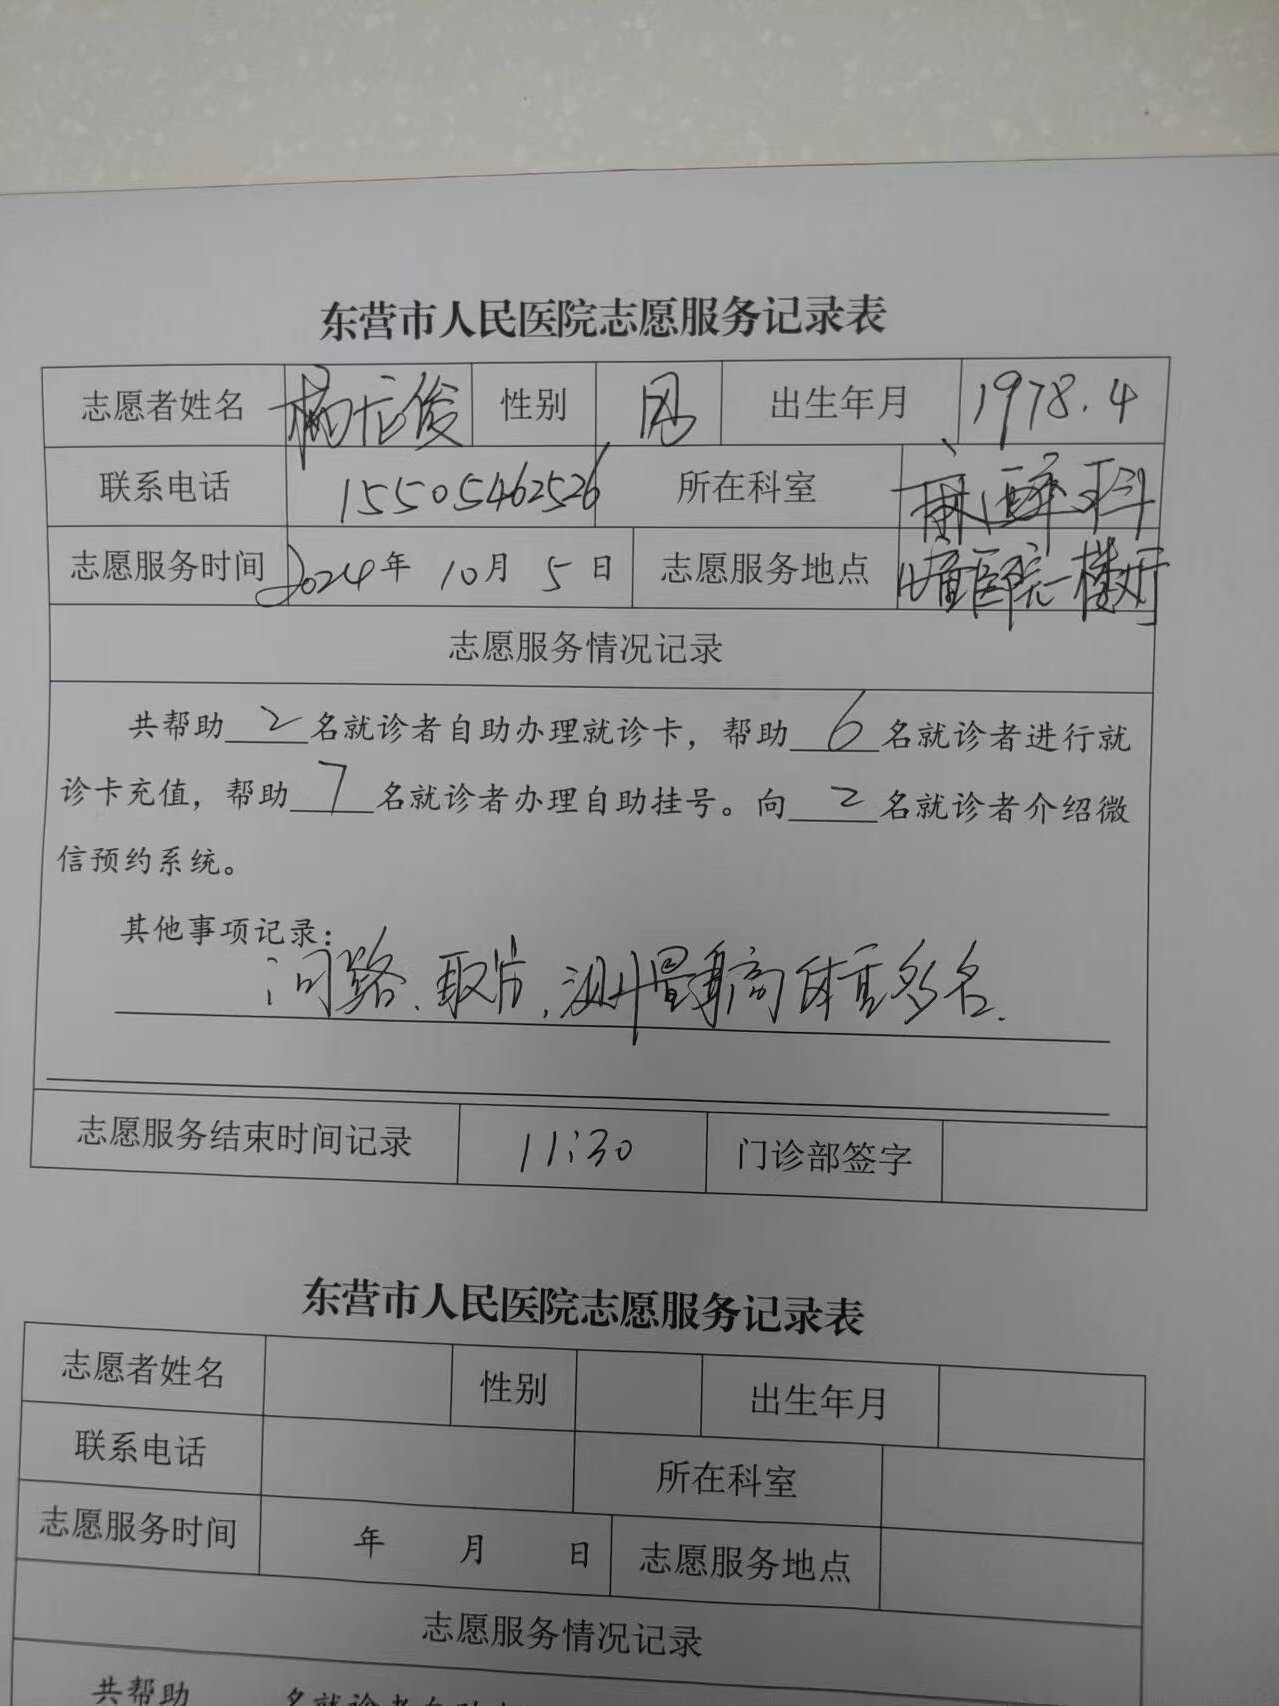 东营市人民医院志愿服务记录表
志愿者姓名 杨 俊 性别 男 出生年月 1978.4
联系电话 15505462526 所在科室 麻醉科
志愿服务时间 2024年 10月 5日 志愿服务地点 儿童医院一楼大厅
志愿服务情况记录
共帮助 2 名就诊者自助办理就诊卡，帮助 6 名就诊者进行就
诊卡充值，帮助 7 名就诊者办理自助挂号。向 2 名就诊者介绍微
信预约系统。
其他事项记录：
问路、取片、测量身高体重多名.
志愿服务结束时间记录 11:30 门诊部签字
东营市人民医院志愿服务记录表
志愿者姓名 性别 出生年月
联系电话 所在科室
志愿服务时间 年 月 日 志愿服务地点
志愿服务情况记录
共帮助